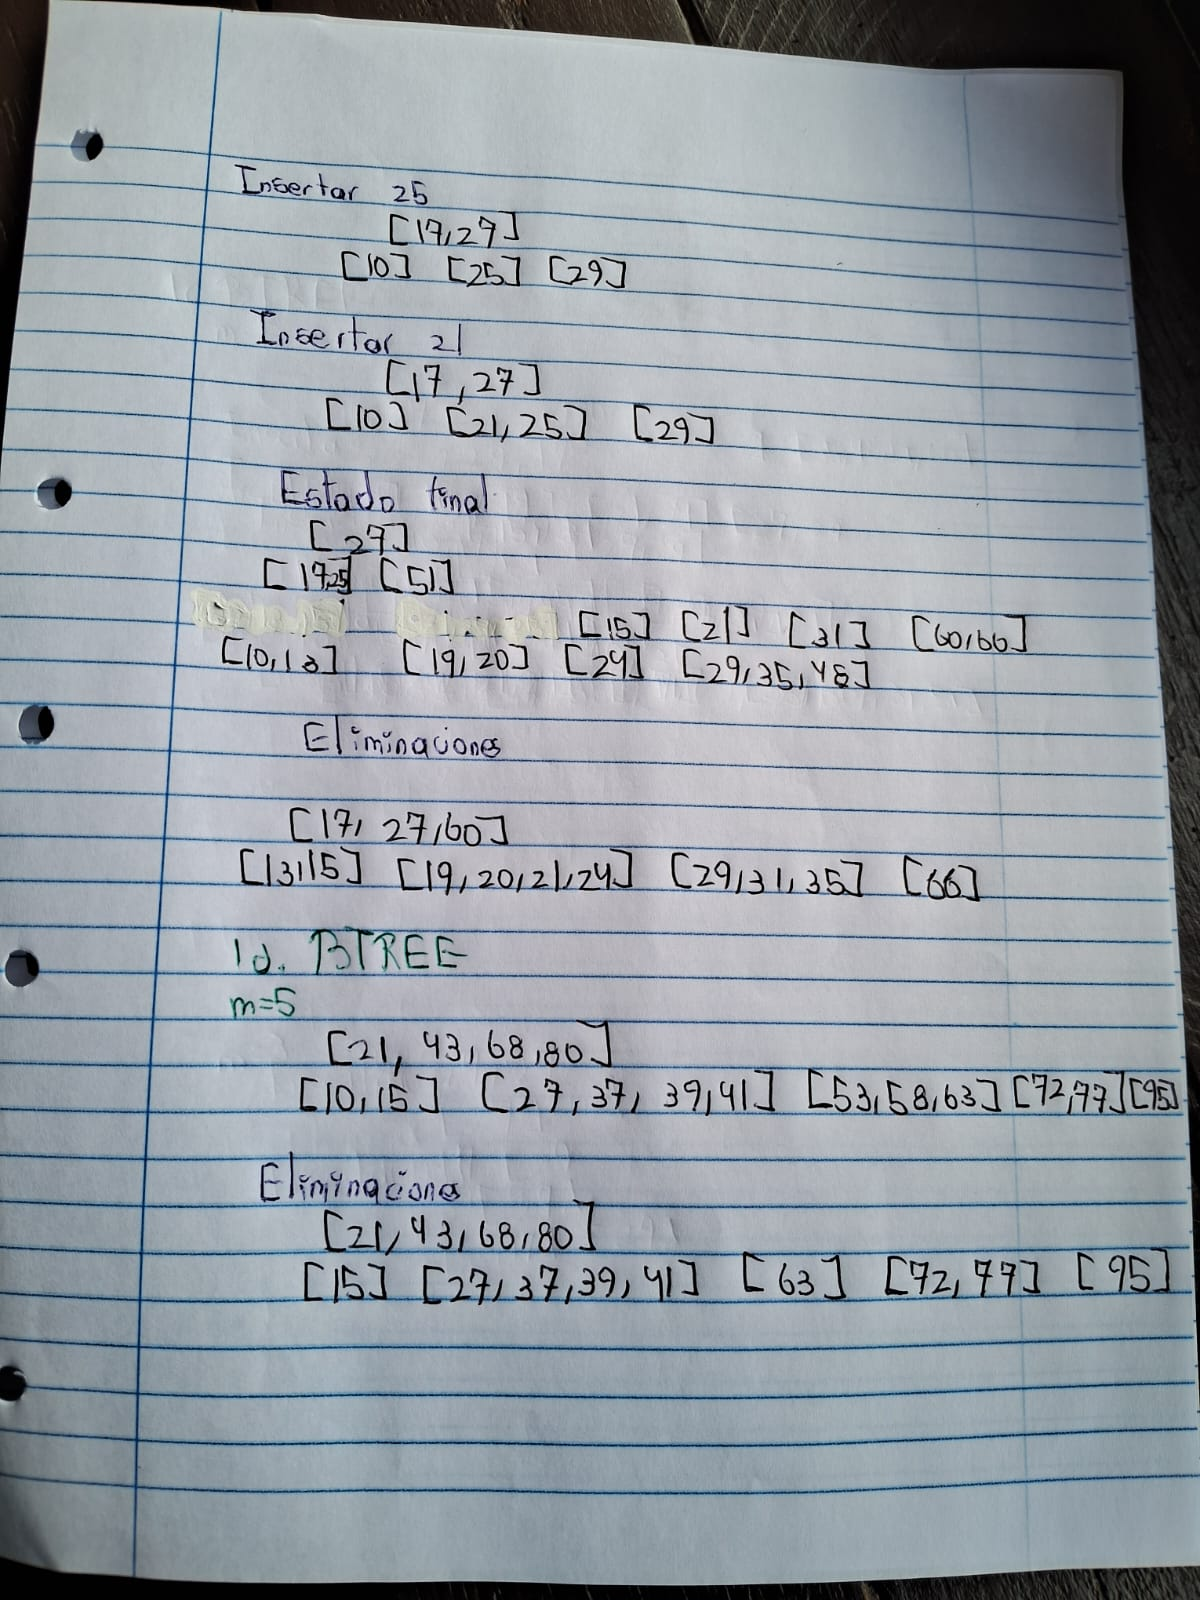 Insertar 25
[17,27]
[10] [25] [29]
Insertar 21
[17,27]
[10] [21,25] [29]
Estado final
[27]
[17,25] [51]
[15] [21] [31] [60,66]
[10,13] [19,20] [24] [29,35,48]
Eliminaciones
[17, 27,60]
[13,15] [19,20,21,24] [29,31,35] [66]
1d. BTREE
m=5
[21, 43,68,80]
[10,15] [27,37, 39,41] [53,58,63] [72,77] [95]
Eliminaciones
[21,43,68,80]
[15] [27,37,39,41] [63] [72,77] [95]